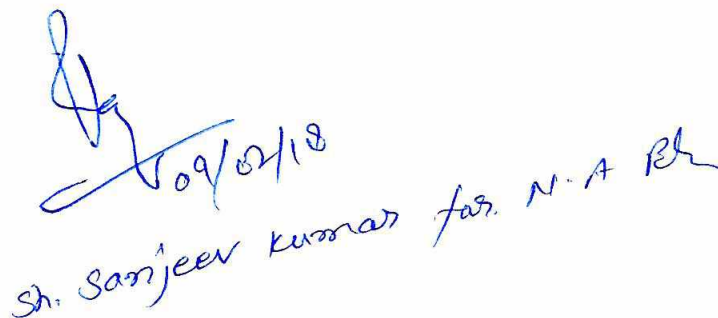 09/02/18
Sh. Sanjeev Kumar for. N.A